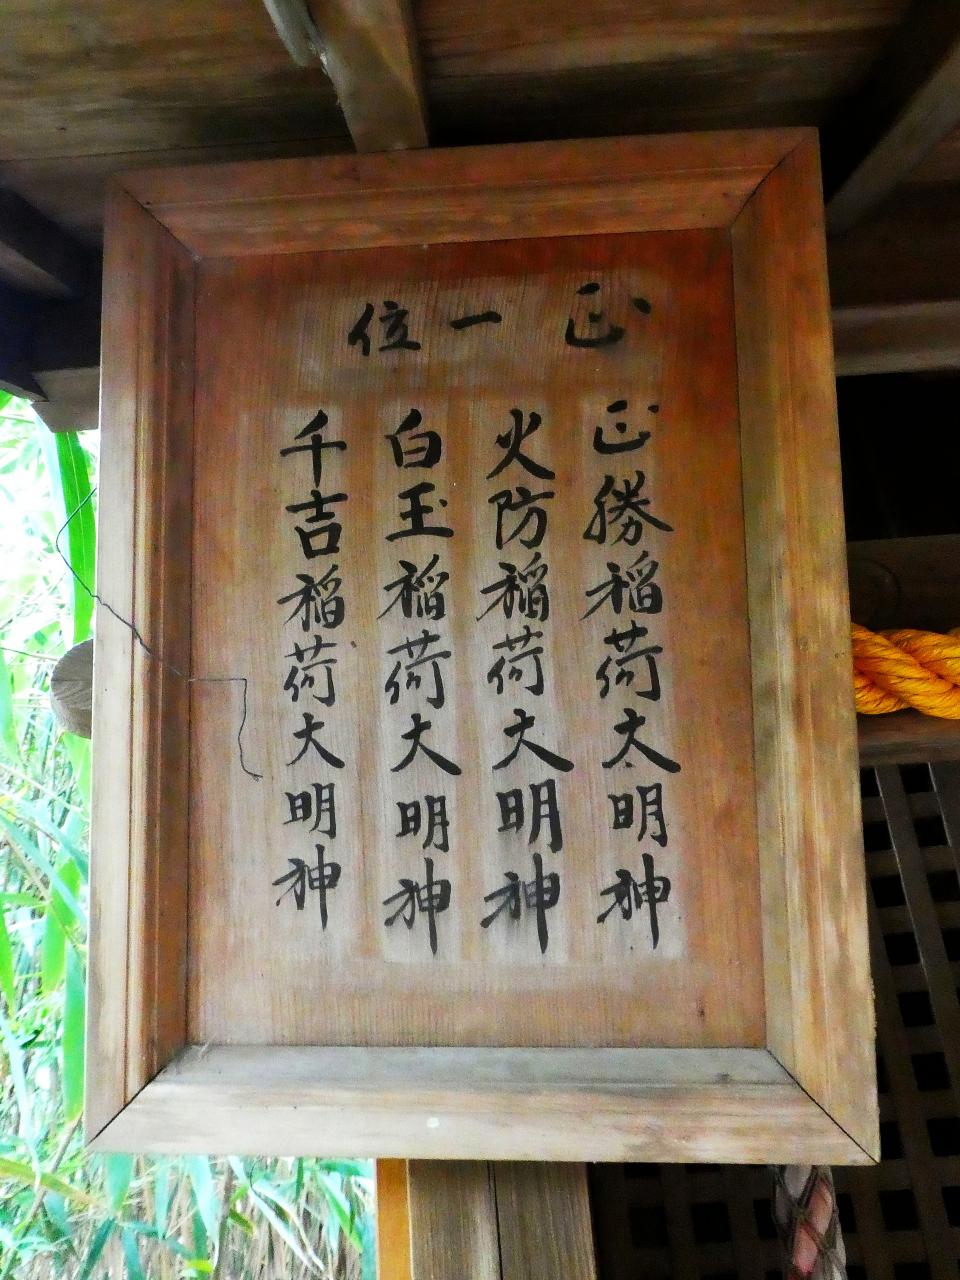 正一位
正勝稲荷大明神
火防稲荷大明神
白玉稲荷大明神
千吉稲荷大明神